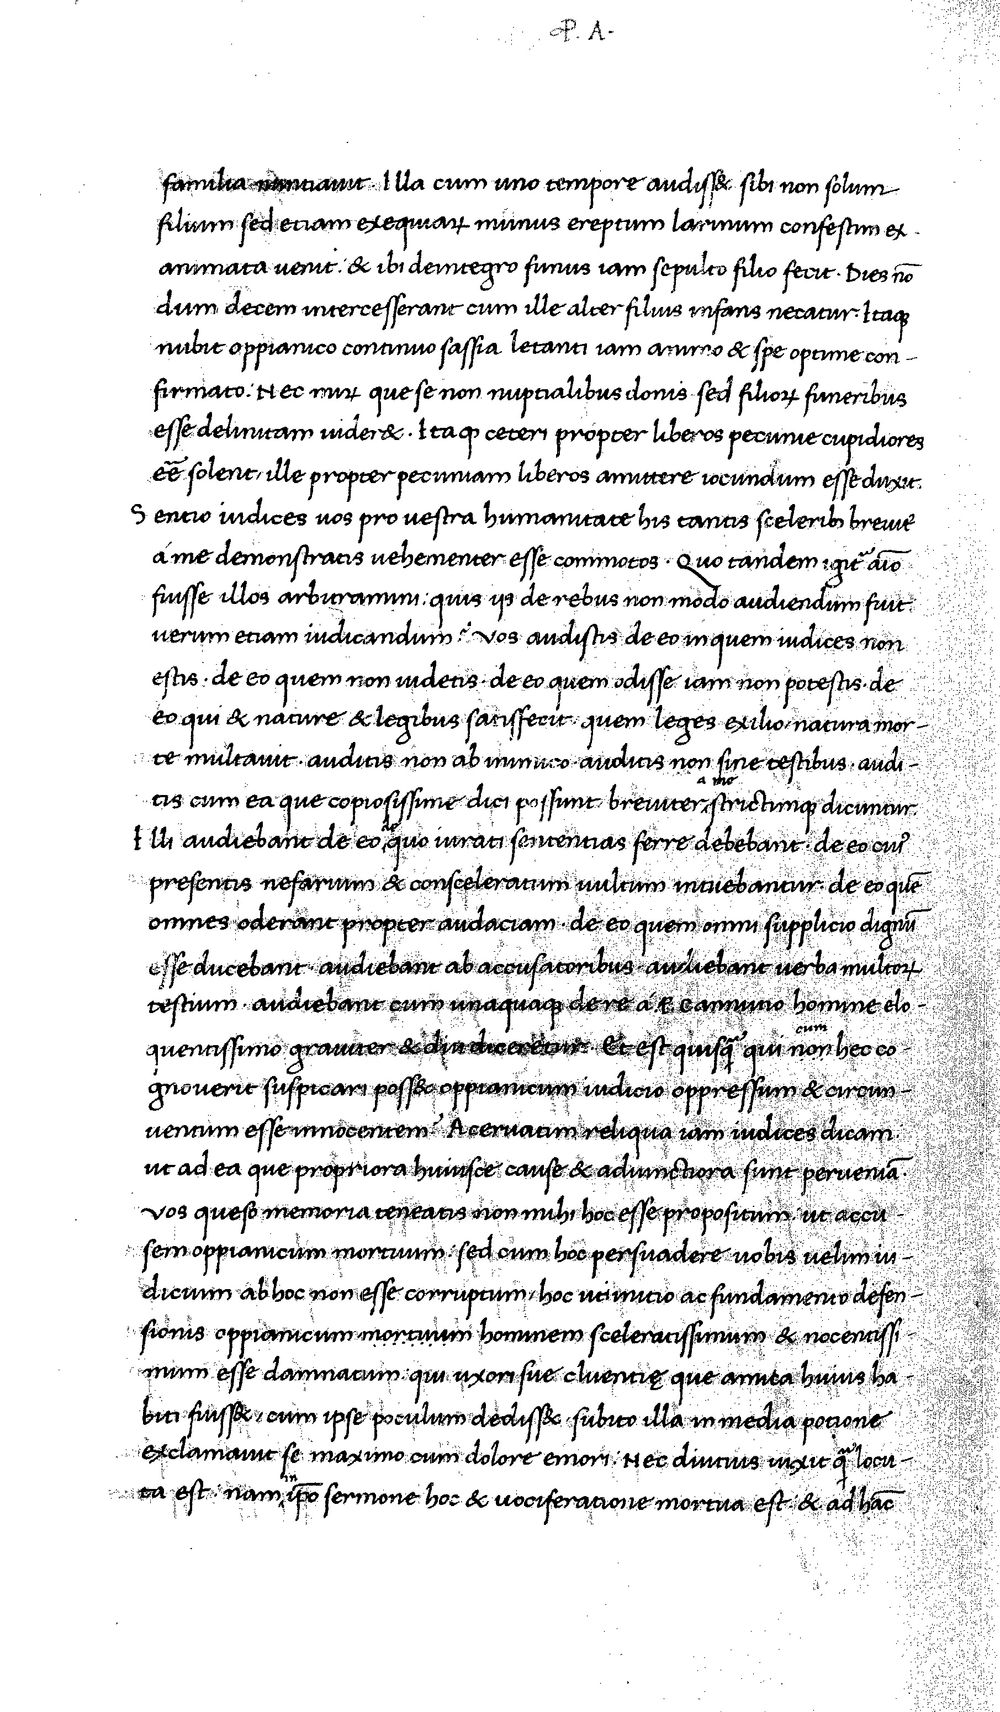 P. A.
familia nuntiauit. Illa cum uno tempore audiss& sibi non solum
filium sed etiam exequiaꝝ munus ereptum larinum confestim ex-
animata uenit: & ibi deintegro funus iam sepulto filio fecit. Dies nō
dum decem intercesserant cum ille alter filius infans necatur. Itaqꝫ
nubit oppianico continuo sassia letanti iam animo & spe optime con-
firmato. Nec miꝝ que se non nuptialibus donis sed filioꝝ funeribus
esse delinitam uider&. Itaqꝫ ceteri propter liberos pecunie cupidiores
eē solent, ille propter pecuniam liberos amittere iocundum esse duxit.
Sentio iudices uos pro uestra humanitate his tantis sceleribꝫ breuit̄
á me demonstratis uehementer esse commotos. Quo tandem igit̄ aīo
fuisse illos arbitramini: quis iis de rebus non modo audiendum fuit:
uerum etiam iudicandum? Vos auditis de eo in quem iudices non
estis. de eo quem non uidetis. de eo quem odisse iam non potestis. de
eo qui & nature & legibus satisfecit. quem leges exilio, natura mor-
te multauit. auditis non ab inimico. auditis non sine testibus. audi-
tis cum ea que copiosissime dici possunt breuiter strictimqꝫ dicuntur.
Illi audiebant de eo de quo iurati sententias ferre debebant. de eo cuiꝰ
presentis nefarium & consceleratum uultum intuebantur. de eo quē
omnes oderant propter audaciam. de eo quem omni supplicio dignū
esse ducebant. audiebant ab accusatoribus. audiebant uerba multoꝝ
testium. audiebant cum unaquaqꝫ de re á P. Cannutio homine elo-
quentissimo grauiter & diu diceretur. Et est quisq̄ qui cum non hec co-
gnouerit suspicari poss& oppianicum iudicio oppressum & circun-
uentum esse innocentem? Aceruatim reliqua iam iudices dicam.
ut ad ea que propriora huiusce cause & adiunctiora sunt perueniā.
Vos queso memoria teneatis non mihi hoc esse propositum. ut accu-
sem oppianicum mortuum. sed cum hoc persuadere uobis uelim iu-
dicium ab hoc non esse corruptum, hoc uti initio ac fundamento defen-
sionis oppianicum mortuum hominem sceleratissimum & nocentissi-
mum esse damnatum. qui uxori sue cluentię que amita huius ha-
biti fuiss&, cum ipse poculum dediss& subito illa in media potione
exclamauit se maximo cum dolore emori. Nec diutius uixit q̄ locu-
ta est. nam in ip̄o sermone hoc & uociferatione mortua est. & ad hāc